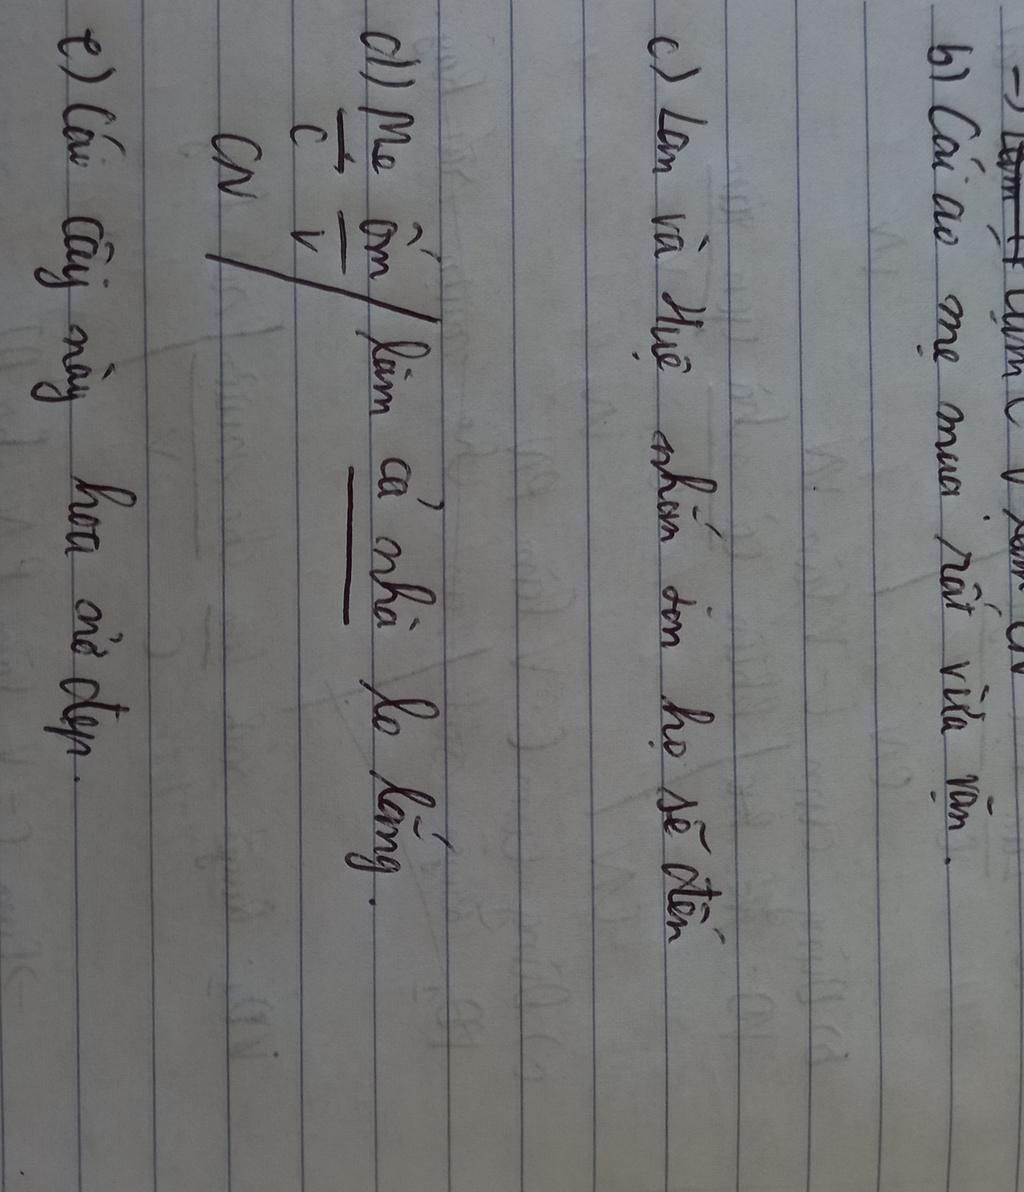 Cụm C V làm CN
b) Cái áo mẹ mua rất vừa vặn.
c) Lan và Huệ nhắn tin họ sẽ đến
d) Mẹ ốm / làm cả nhà lo lắng.
C V
CN /
e) Cái cây này hoa nở đẹp.